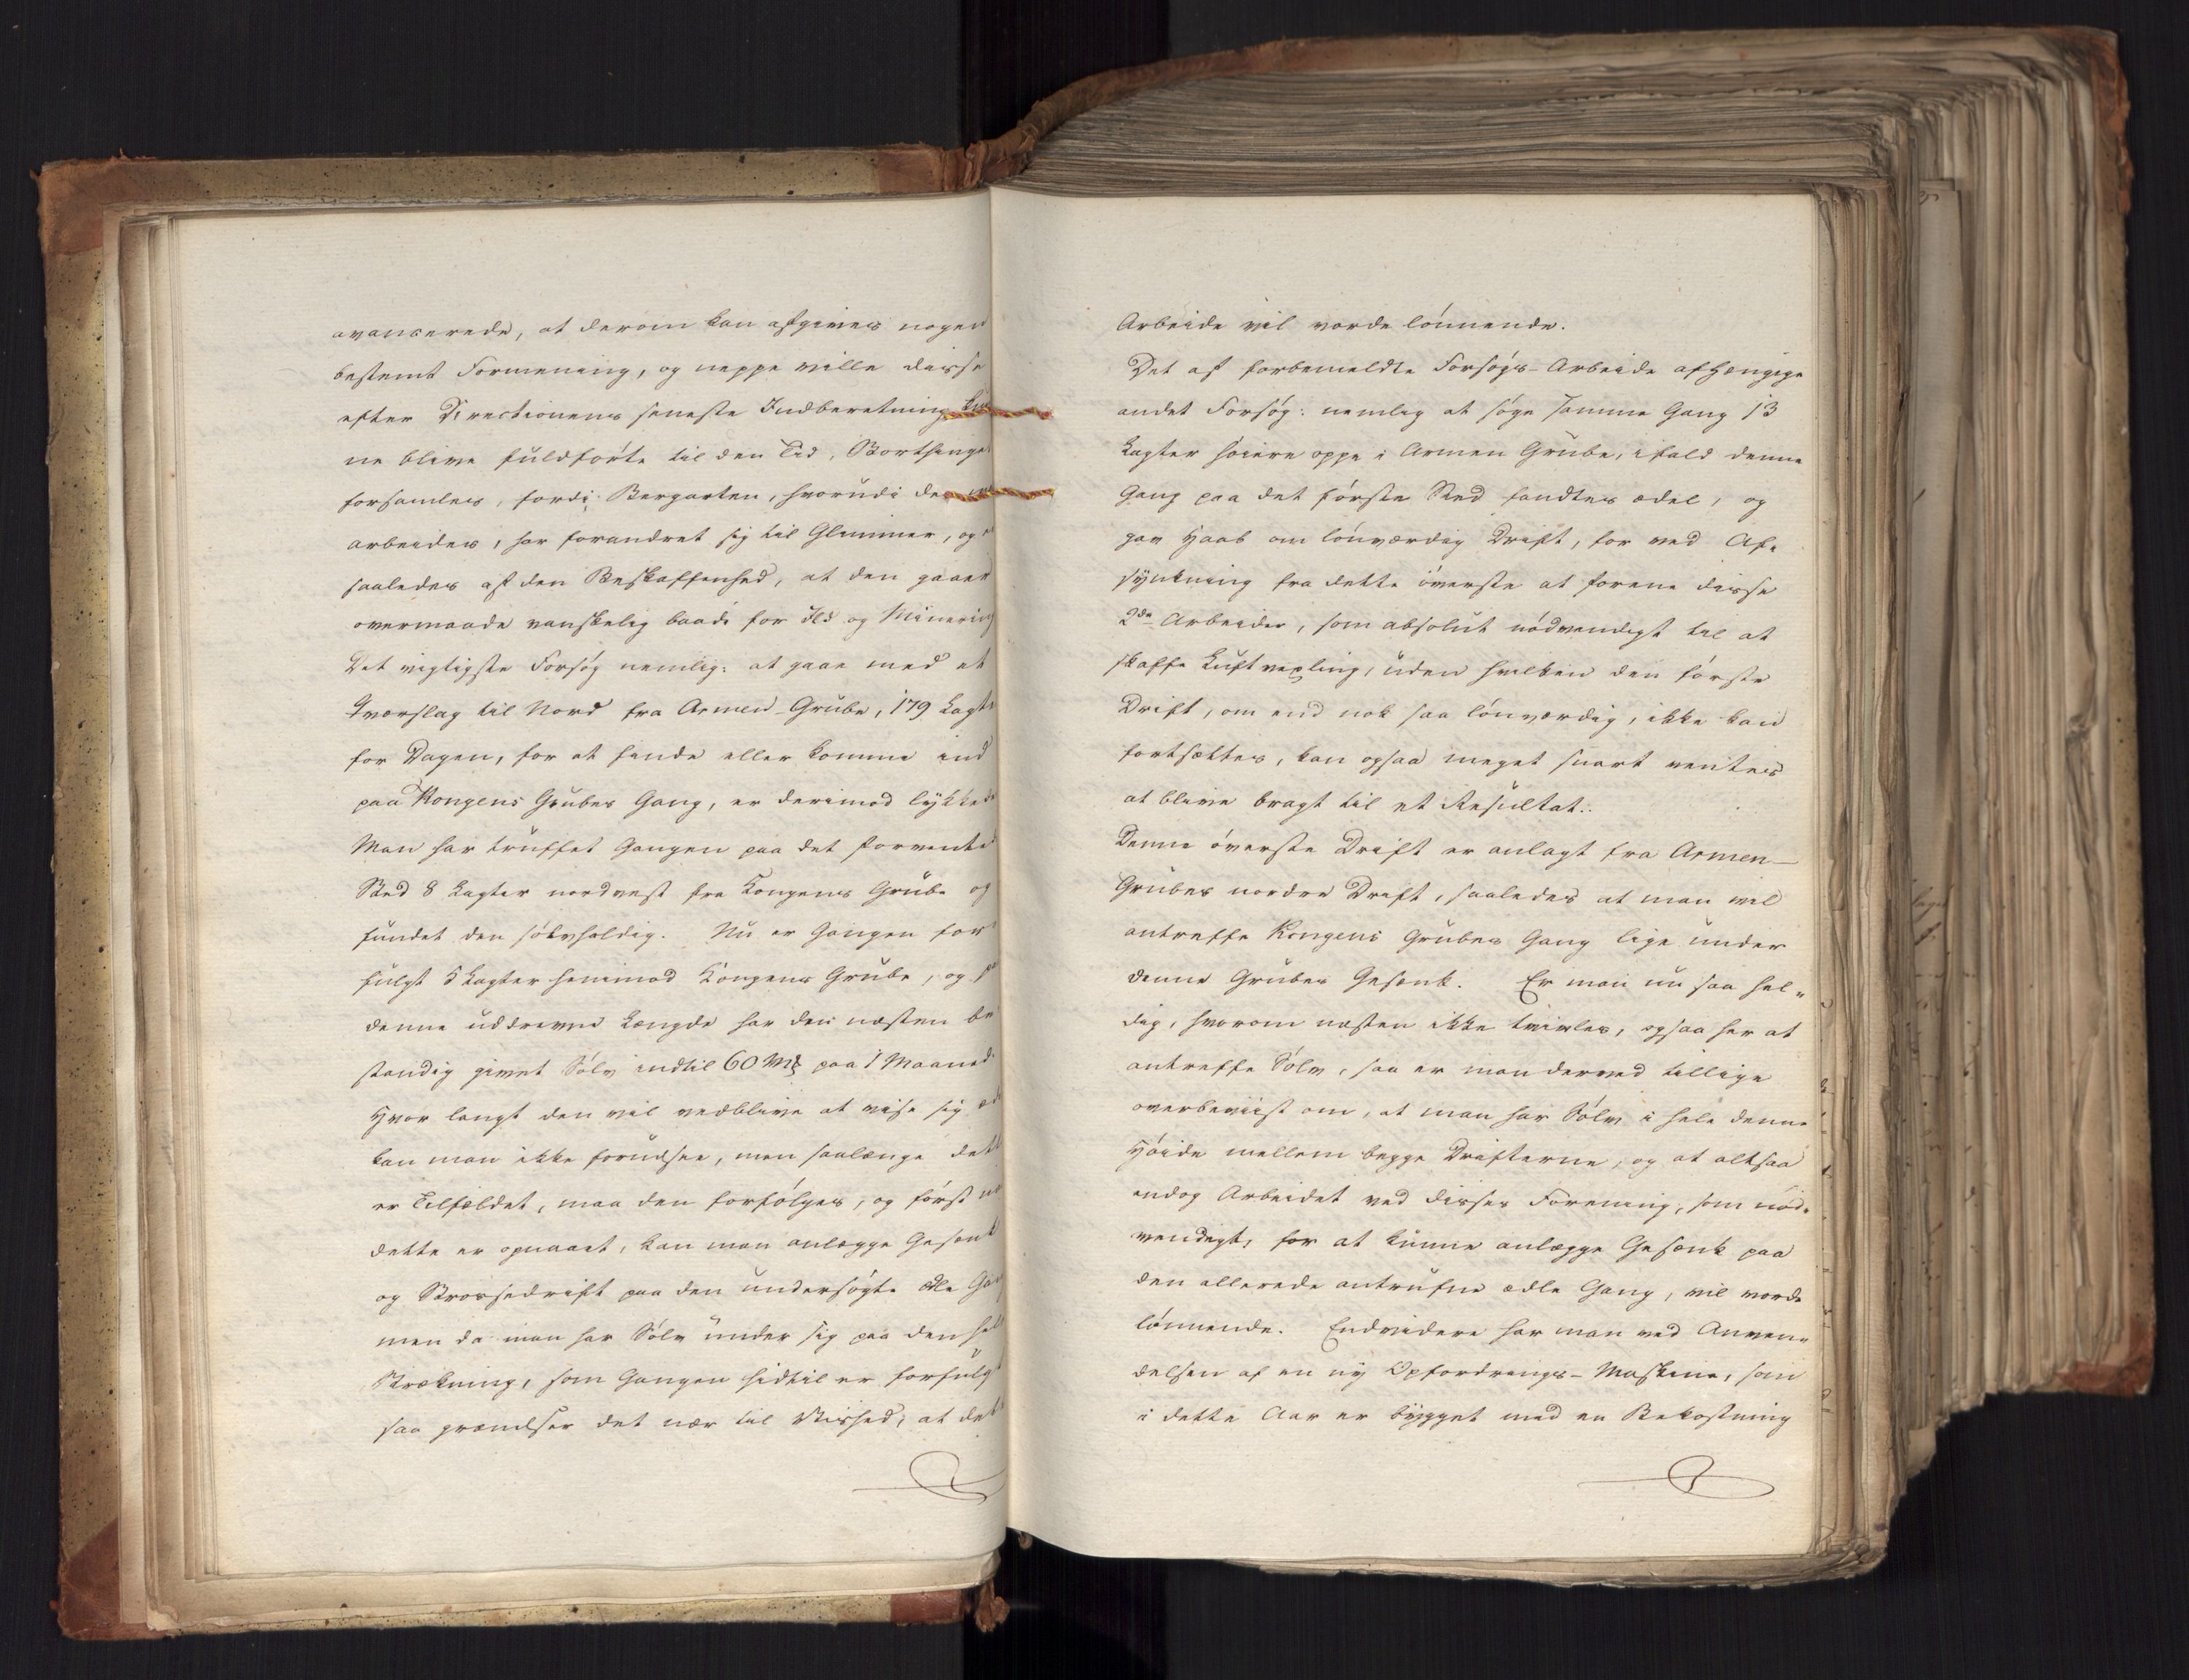 avancerede, at derom kan afgives nogen
bestemt Formening, og neppe ville disse
efter Directionens seneste Indberetning kun
ne blive fuldförte til den Tid, Storthinget
forsamles, fordi Bergarten, hvorudi der
arbeides, har forandret sig til Glimmer, og er
saaledes af den Beskaffenhed, at den gaaer
overmaade vanskelig baade for Ild og Minering
Det vigtigste Forsög nemlig: at gaae med et
Tværslag til Nord fra Armen-Grube, 179 Lagter
for Dagen, for at finde eller komme ind
paa Kongens Grubes Gang, er derimod lykkedes
Man har truffet Gangen paa det forventede
Sted 8 Lagter nordvest fra Kongens Grube og
fundet den sölvholdig. Nu er Gangen for
fulgt 5 Lagter henimod Kongens Grube, og paa
denne uddrevne Længde har den næsten be
standig givet Sölv indtil 60 Mk paa 1 Maaned.
Hvor langt den vil vedblive at vise sig ædel
kan man ikke forudsee, men saalænge dette
er Tilfældet, maa den forfölges, og först naar
dette er opnaaet, kan man anlægge Gesenk
og Strossedrift paa den undersögte ædle Gang
men da man har Sölv under sig paa den hele
Strækning, som Gangen hidtil er forfulgt
saa grændser det nær til Vished, at dette
Arbeide vil vorde lönnende.
Det af forbemeldte Forsögs-Arbeide afhængige
andet Forsög: nemlig at söge samme Gang 13
Lagter höiere oppe i Armen Grube, ifald denne
Gang paa det förste Sted fandtes ædel, og
gav Haab om lönværdig Drift, for ved Af„
synkning fra dette överste at forene disse
2de Arbeider, som absolut nödvendigt til at
skaffe Luftvexling, uden hvilken den förste
Drift, om end nok saa lönværdig, ikke kan
fortsættes, kan ogsaa meget snart ventes
at blive bragt til et Resultat.
Denne överste Drift er anlagt fra Armen-
Grubes nordre Drift, saaledes at man vil
antreffe Kongens Grubes Gang lige under
denne Grubes Gesænk. Er man nu saa hel„
dig, hvorom næsten ikke tvivles, ogsaa her at
antreffe Sölv, saa er man derved tillige
overbeviist om, at man har Sölv i hele denne
Höide mellem begge Drifterne, og at altsaa
endog Arbeidet ved disses Forening, som nöd„
vendigt, for at kunne anlægge Gesænk paa
den allerede antrufne ædle Gang, vil vorde
lönnende. Endvidere har man ved Anven„
delsen af en ny Opfordrings-Maskine, som
i dette Aar er bygget med en Bekostning